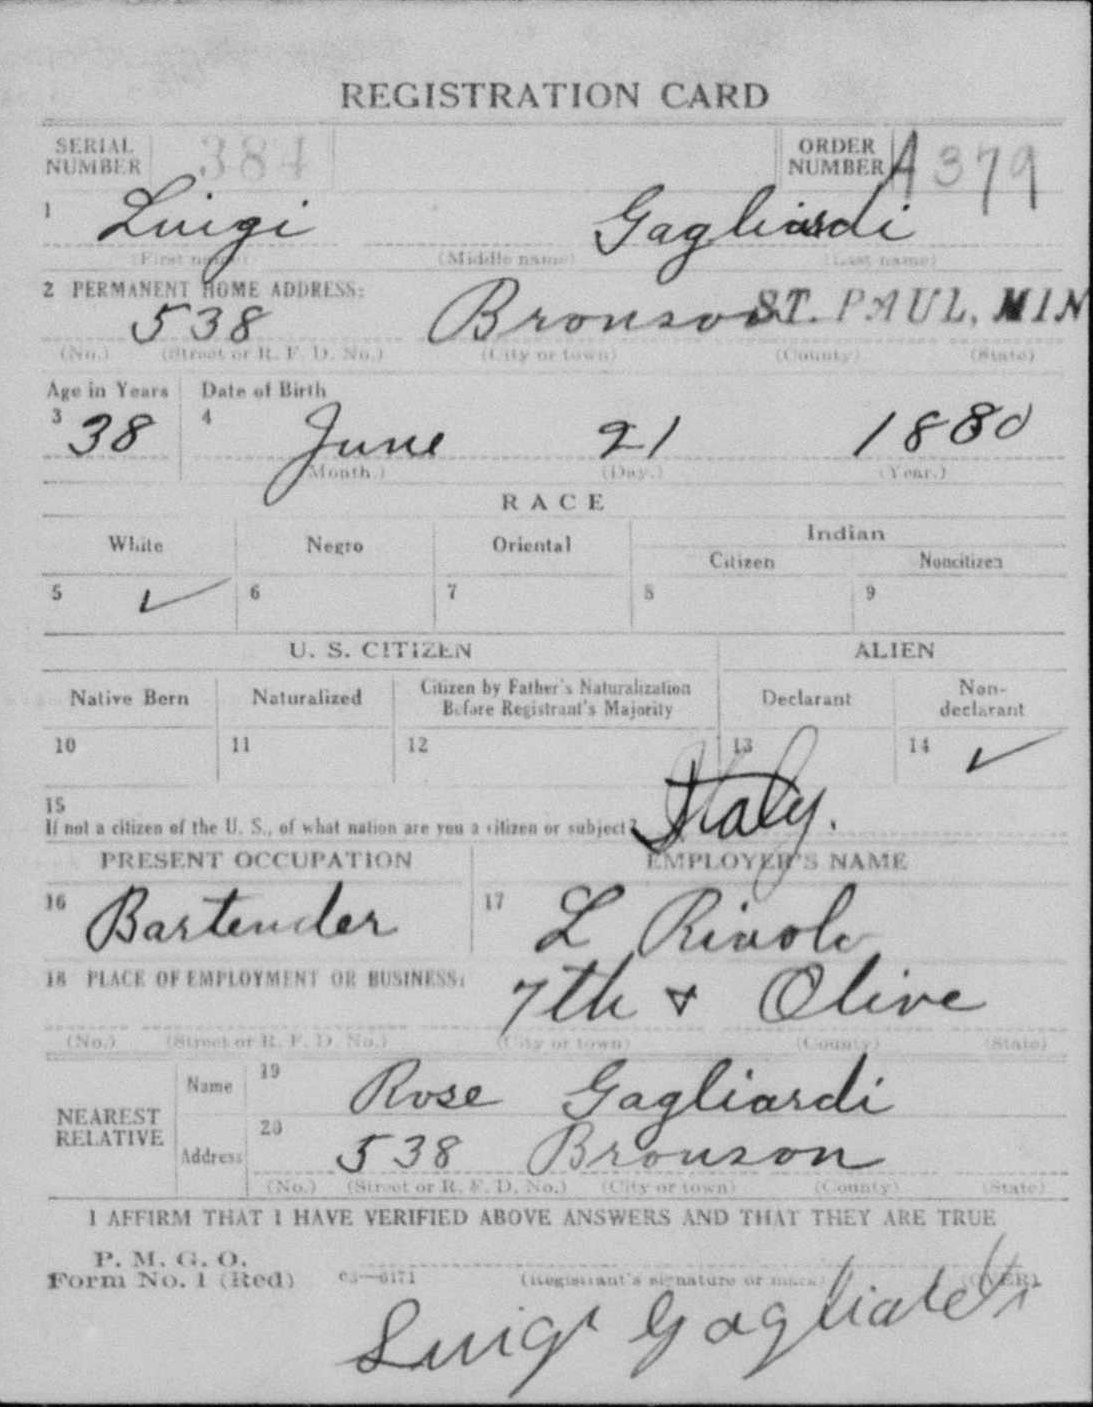 REGISTRATION CARD
SERIAL NUMBER 384 ORDER NUMBER A 379
1 Luigi Gagliardi
(First name) (Middle name) (Last name)
2 PERMANENT HOME ADDRESS:
538 Bronson ST. PAUL, MIN
(No.) (Street or R. F. D. No.) (City or town) (County) (State)
Age in Years Date of Birth
3 38 4 June 21 1880
(Month.) (Day.) (Year.)
RACE
White Negro Oriental Indian
Citizen Noncitizen
5 ✓ 6 7 8 9
U. S. CITIZEN ALIEN
Native Born Naturalized Citizen by Father's Naturalization Before Registrant's Majority Declarant Non-declarant
10 11 12 13 14 ✓
15
If not a citizen of the U. S., of what nation are you a citizen or subject? Italy.
PRESENT OCCUPATION EMPLOYER'S NAME
16 Bartender 17 L
18 PLACE OF EMPLOYMENT OR BUSINESS:
7th & Olive
(No.) (Street or R. F. D. No.) (City or town) (County) (State)
NEAREST RELATIVE
Name 19 Rose Gagliardi
Address 20 538 Bronson
(No.) (Street or R. F. D. No.) (City or town) (County) (State)
I AFFIRM THAT I HAVE VERIFIED ABOVE ANSWERS AND THAT THEY ARE TRUE
P. M. G. O.
Form No. 1 (Red) 03—6171 (Registrant's signature or mark) (OVER)
Luigi